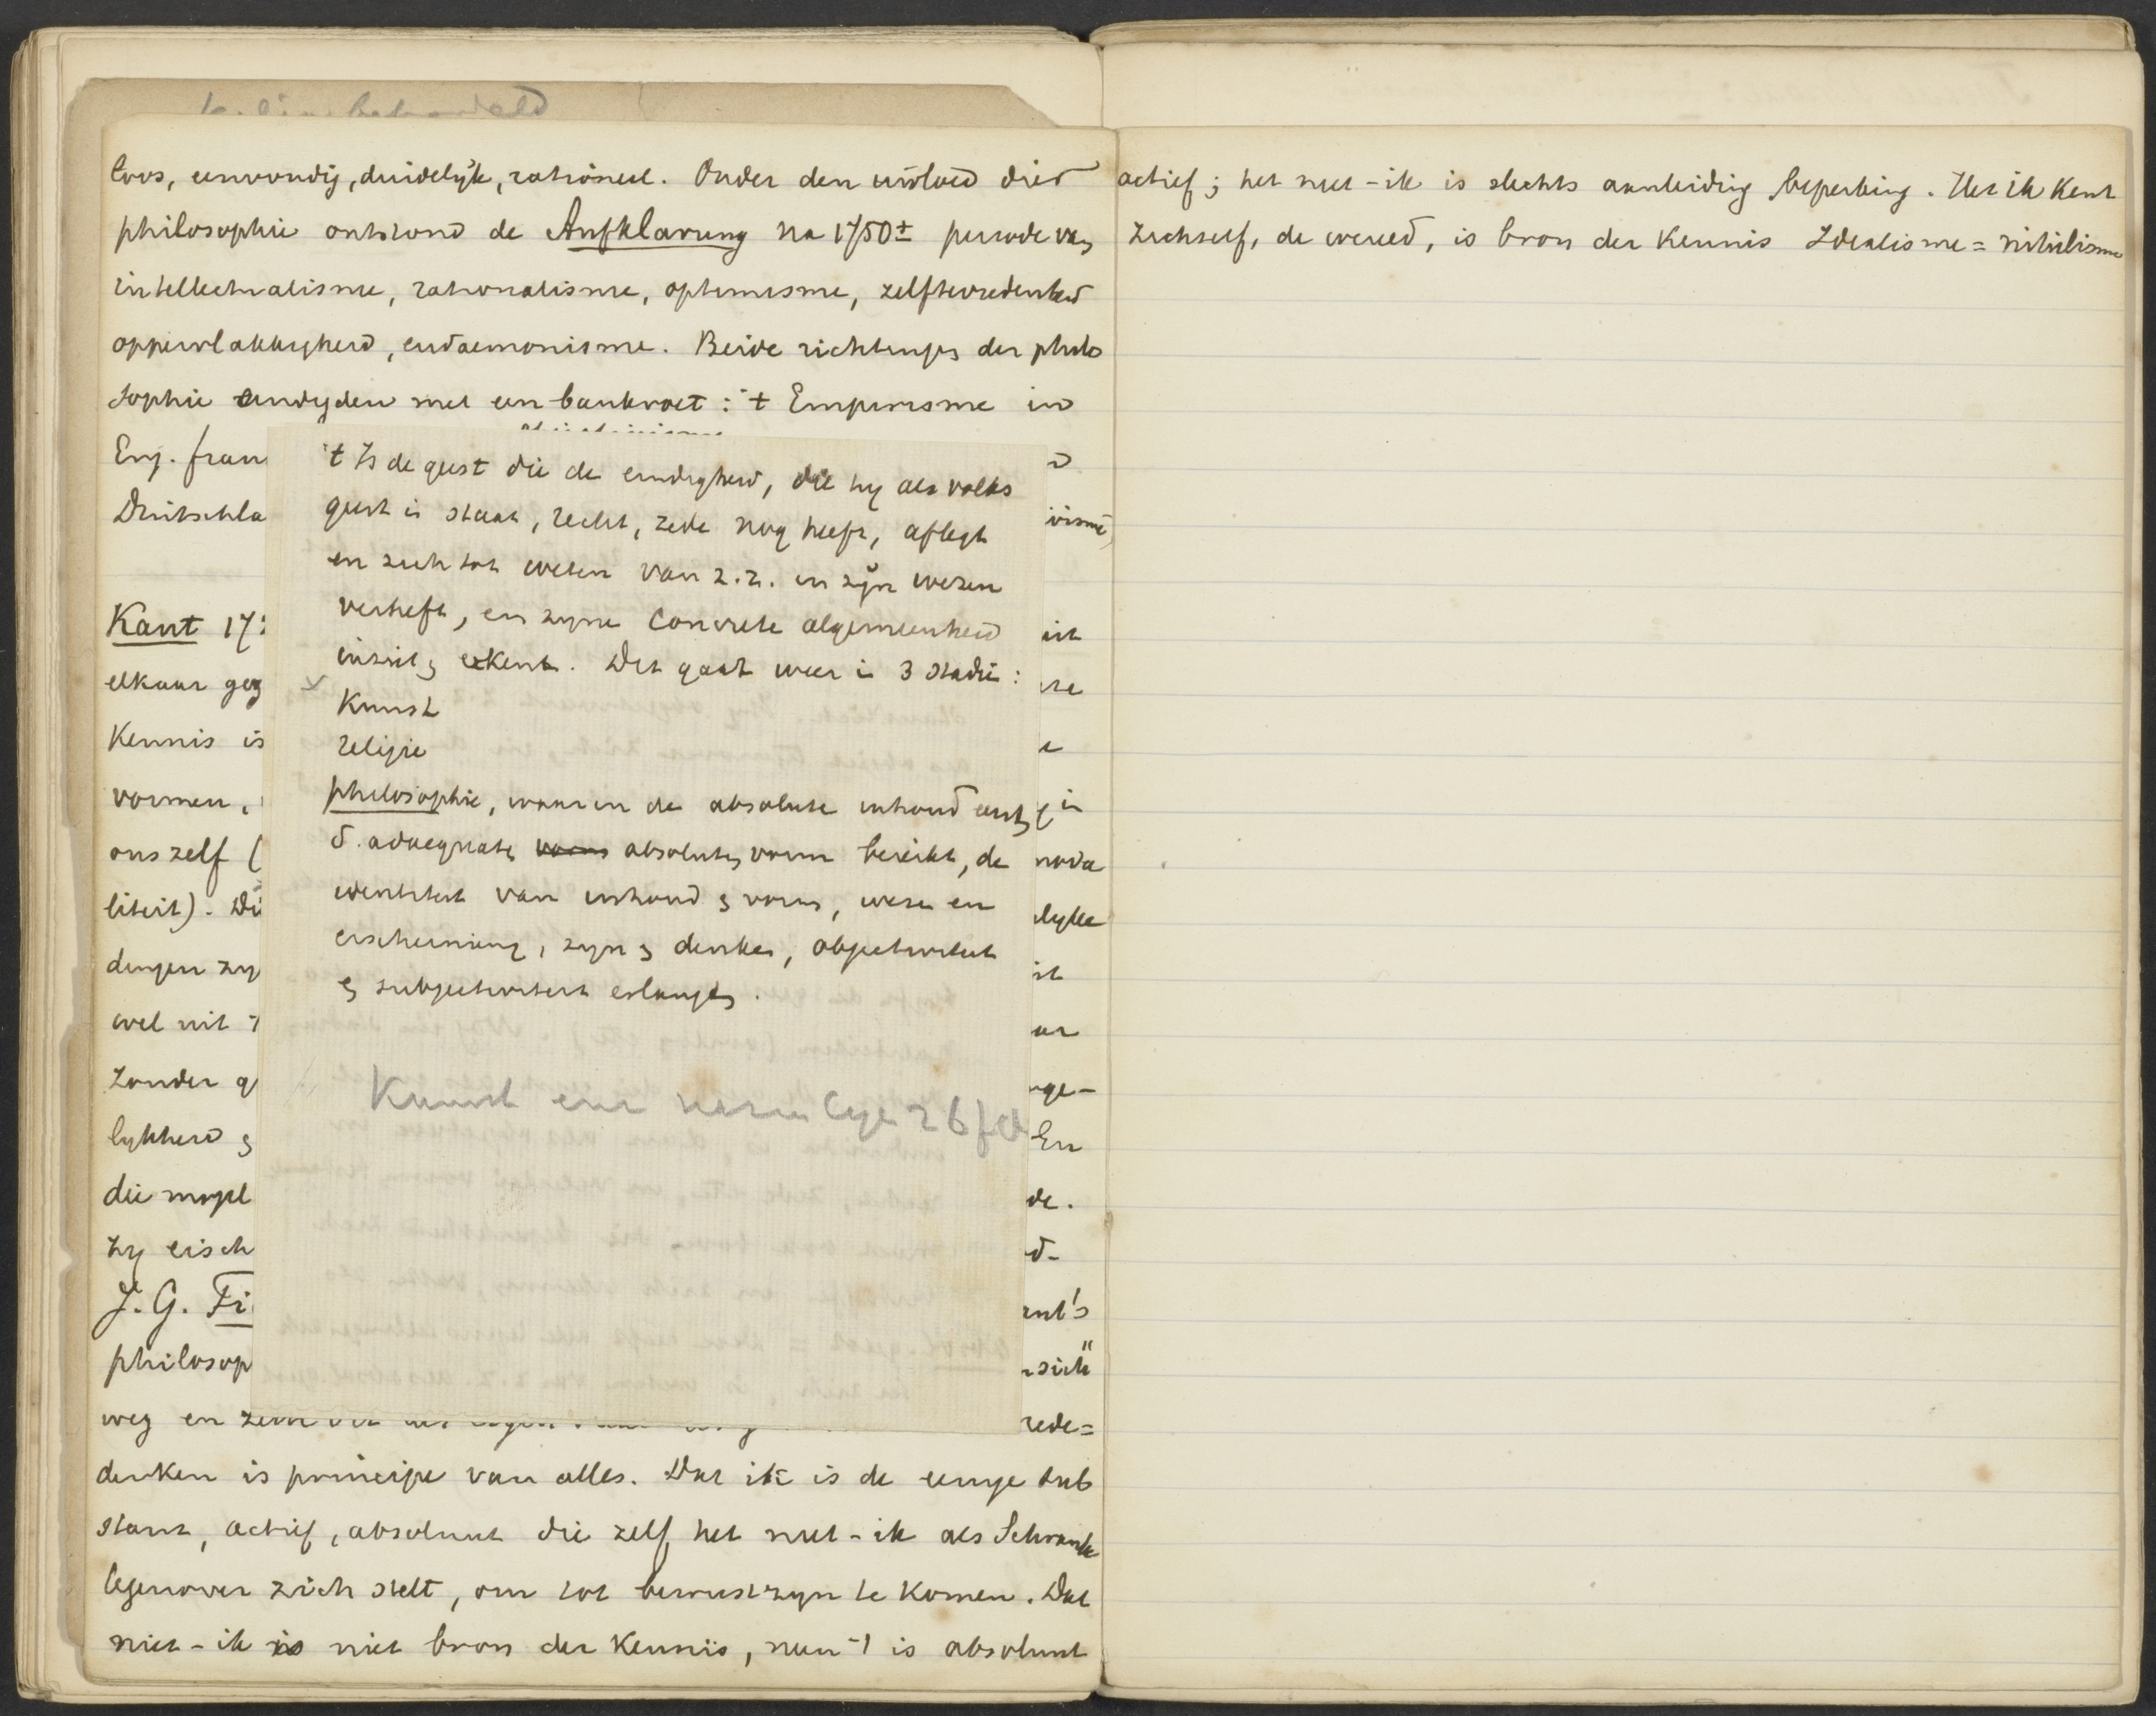 loos, eenvoudig, duidelijk, rationeel. Onder den invloed dier
philosophie ontstond de Aufklarung na 1750± periode van
intellectualisme, rationalisme, optimisme, zelftevredenheid
oppervlakkigheid, eudaemonisme. Beide richtingen der philo
sophie eindigden met een bankroet: 't Empirisme in
Eng. fran
Duitschla
Kant 17
elkaar geg
Kennis is
vormen,
ons zelf (
liteit). Di
dingen zy
wel uit
zonder g
lykheid en
die mogel
zy eisch
J. G. Fi
philosop
weg en
denken is principe van alles. Dat ik is de eenige sub
stant, actief, absoluut die zelf het niet-ik als Schranke
tegenover zich stelt, om tot bewustzyn te komen. Dat
niet-ik is niet bron der Kennis, neen 't is absoluut
't Is de geest die de eindigheid, die hy als volks
geest in staat, recht, zede nog heeft, aflegt
en zich tot weten van z.z. in zyn wezen
verheft, en zyne concrete algemeenheid
inziet en erkent. Dit gaat weer in 3 stadiën:
Kunst
religie
philosophie, waarin de absolute inhoud eerst
d. adaequate vorm absolute vorm bereikt, de
identiteit van inhoud en vorm, wezen en
erscheinung, zyn en denken, objectiviteit
en subjectiviteit erlangen.
Kunst een
nt's
sich"
rede=
actief; het niet-ik is slechts aanleiding beperking. Het ik Kent
zichzelf, de wereld, is bron der Kennis Idealisme = nihilisme